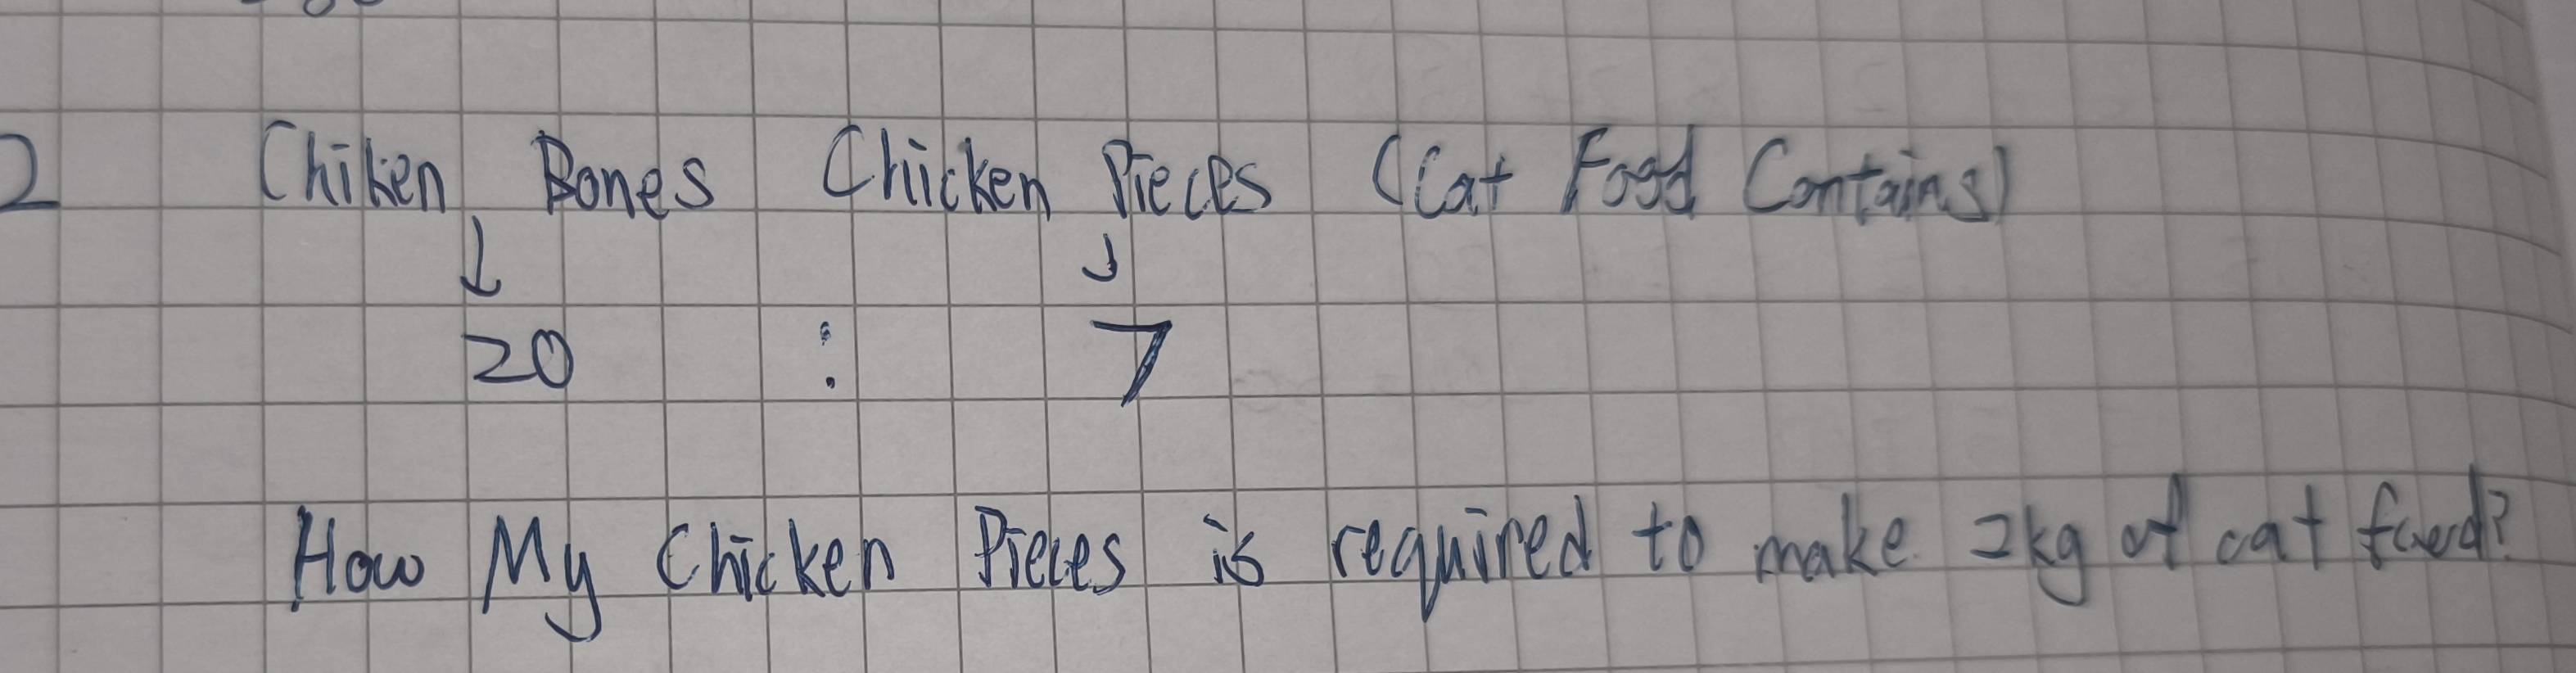 2 Chiken Bones Chicken Pieces (Cat Food Contains)
↓ ↓
20 : 7
How My Chicken Pieces is required to make 2kg of cat food?